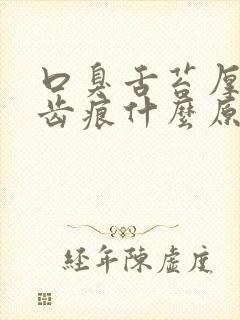 口臭舌苔厚
齿痕什麼原
经年陳虛度